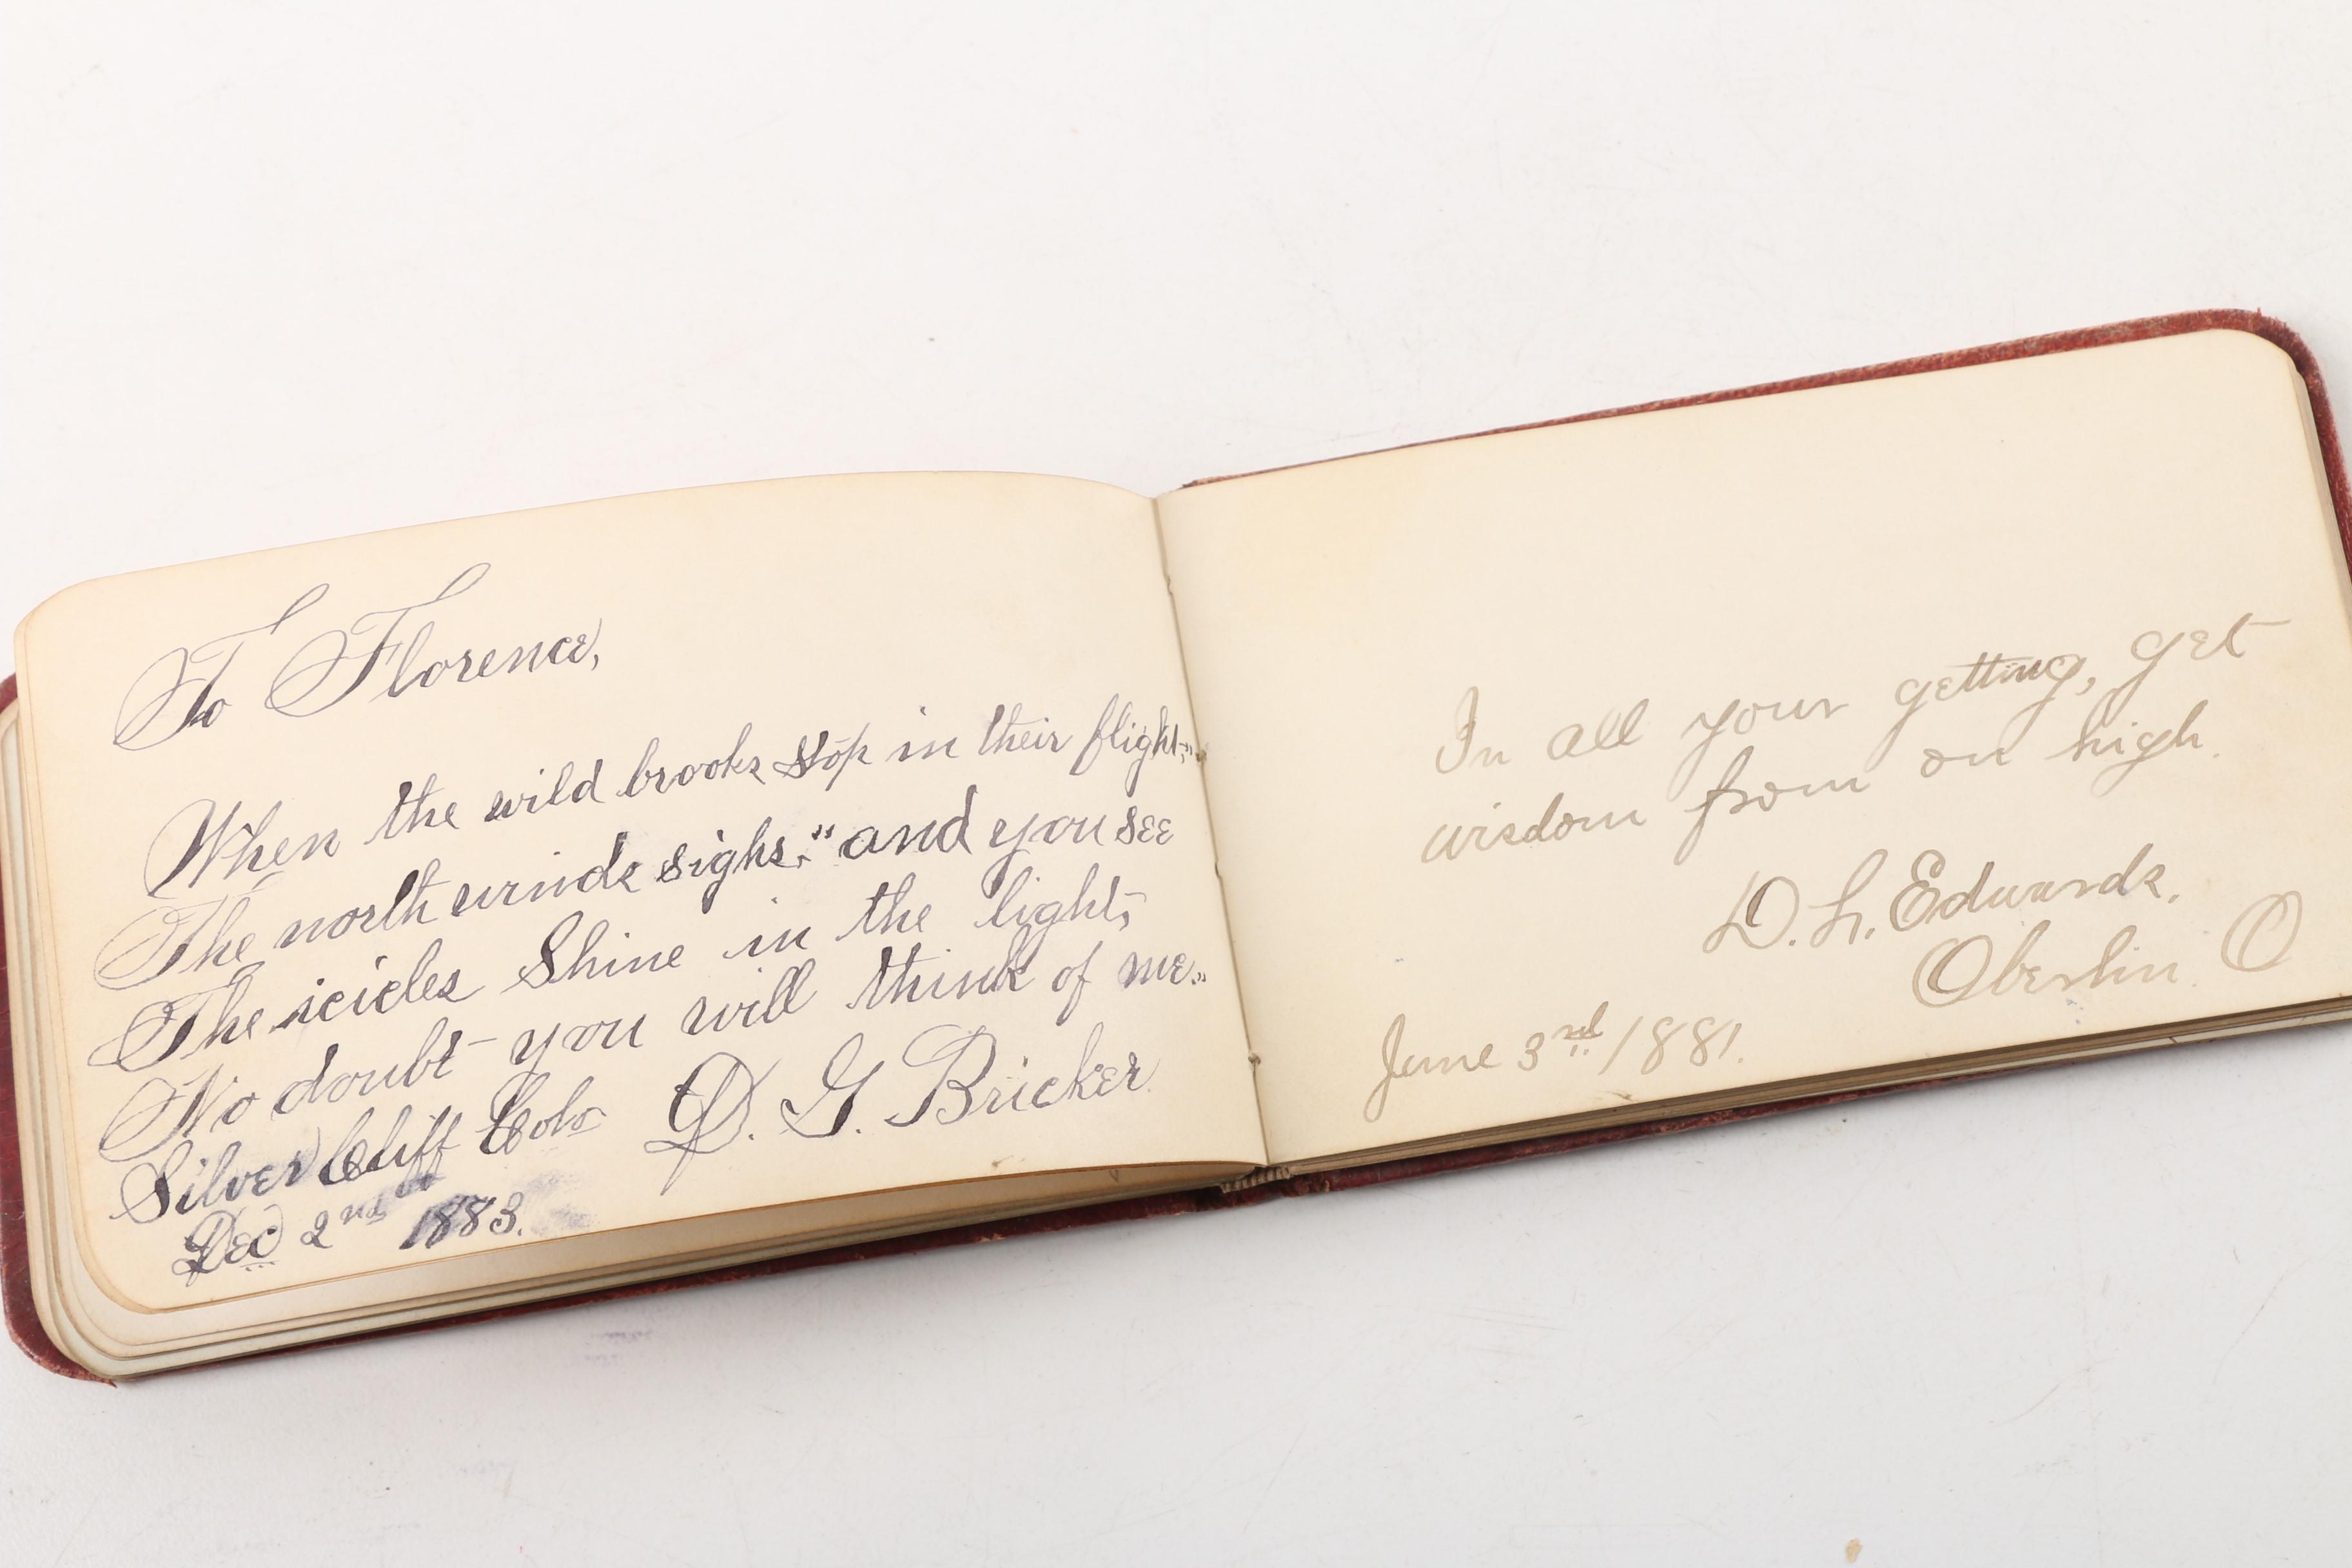 To Florence,
When the wild brooks stop in their flight,"
The north winds sighs," and you see
The icicles Shine in the light,
No doubt you will think of me."
Silver Cliff Colo D. G. Bricker
Dec 2nd 1883.
In all your getting, get
wisdom from on high.
D. L. Edwards.
Oberlin. O
June 3rd /881.